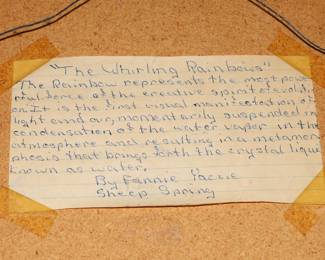 "The Whirling Rainbows"
The Rainbow represents the most power
ful force of the creative spirit of evoluti
on. It is the first visual manifestation of
light and air, momentarily suspended in
condensation of the water vapor in the
atmosphere and resulting in a metamor
phosis that brings forth the crystal liquid
known as water.
By Fannie
Sheep Spring